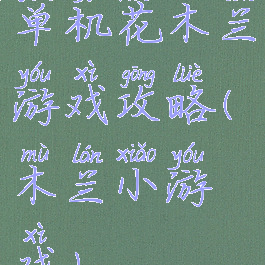 单机花木兰
yóu xì gōng lüè
游戏攻略(
mù lán xiǎo yóu
木兰小游
xì
戏)